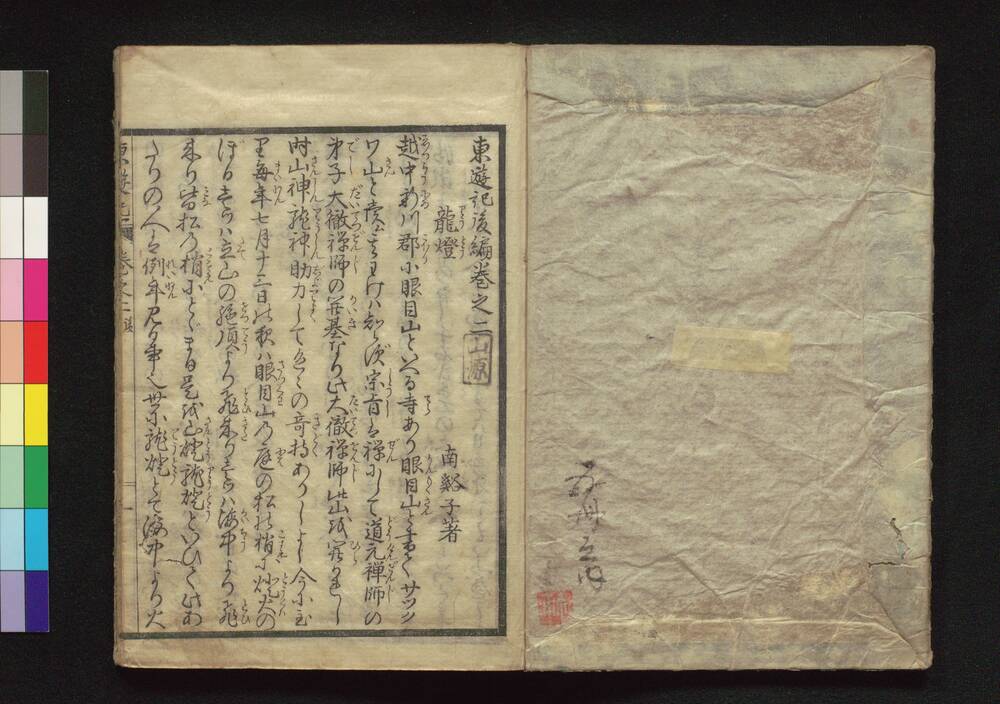 東遊記後編巻之二
山源
龍燈
南谿子著
越中新川郡に眼目山といへる寺あり眼目山と書てサツクワ
山と读ことわけハ知らす宗旨は禅にして道元禅師の
弟子大徹禅師の開基なり此大徹禅師此山を開かれし
時山神龍神助力して色々の奇特ありしよし今に至
り毎年七月十三日の夜ハ眼目山の庭の松の梢に燈火の
ほり其らハ立山の絶頂より飛来り其らハ海中より飛
来り皆松の梢にとゞまる是を山燈龍燈といひて此あ
たりの人は例年見る事也世に龍燈とて海中より火